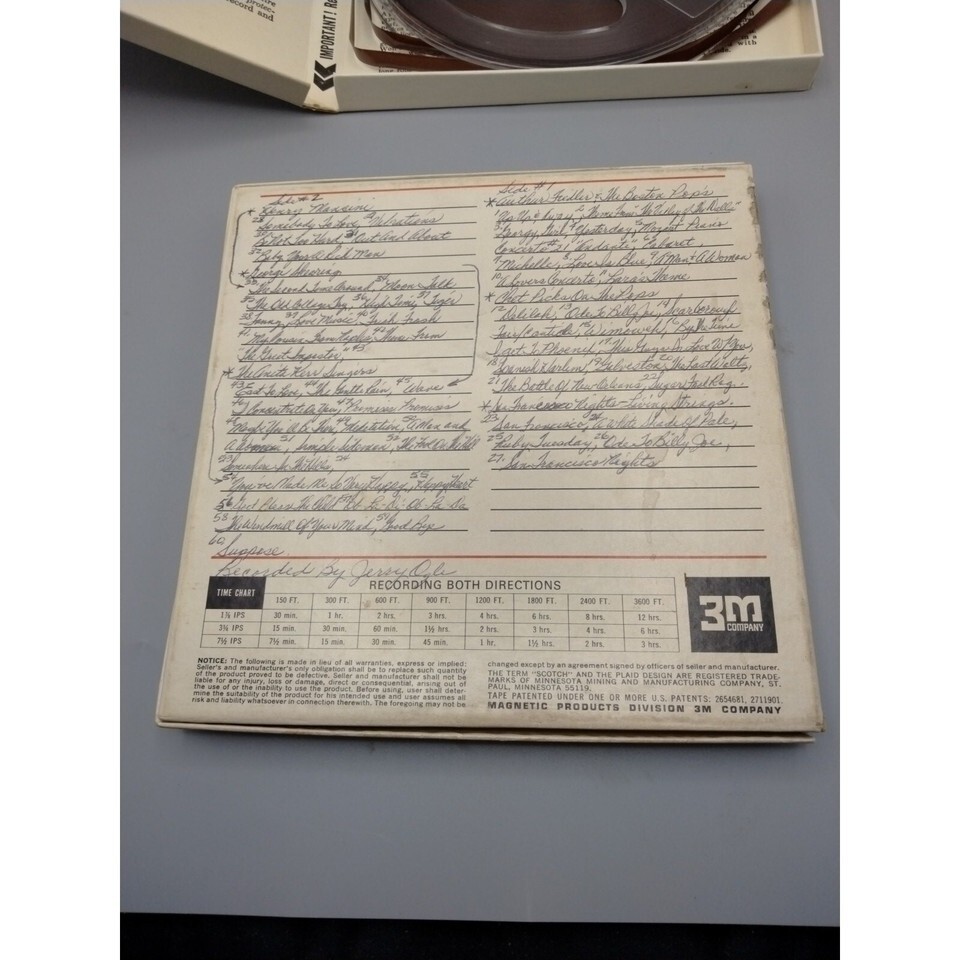 record and
IMPORTANT! Re
with
Side #2
* Henry Mancini
28 Somebody To Love, 29 Vibrations
30 Not Too Hard, 31 Out And About
32 Baby, You're A Rich Man
* George Shearing
33 The Second Time Around, 34 Moon Talk
35 The Old College Try, 36 High Time, 37 Tiger
38 Tammy, 39 Love Music, 40 Fresh
The Great Impostor,
* The Anita Kerr Singers
43 East To Love, 44 The Gentle Rain, 45 Wave
46 I Concentrate On You, 47 Promises Promises
48 Maybe You'll Be There, 49 Meditation, 50 A Man and
A Woman, 51 52 The Fool On The Hill
53 Somewhere In The Hills, 54
54 You've Made Me So Very Happy, 55 Happy Heart
56 The Child 57 Ob-La-Di-Ob-La-Da
58 The Windmill Of Your Mind, 59 Good Bye
60 Suppose
Recorded By Jerry Ogle
Side #1
* Author Fiedler & The Boston Pop's
1 Up Up & Away, 2 Theme From "The Valley Of The Dolls"
3 Georgy Girl 4 Yesterday, 5 Mozart Piano
Concerto #21 "Andante"
7 Michelle, 8 Love Is Blue 9 A Man & A Woman
10 A Lovers Concerto, 11 Lara's Theme
* Chet Picks On The Pops
12 Delilah, 13 Ode To Billy Joe, 14 Scarborough
Fair/Canticle, 15 16 By The Time
I Get To Phoenix, 17 This Guy's In Love W/You,
18 Spanish Harlem, 19 Galveston, 20 The Last Waltz,
21 The Battle Of New Orleans, 22 Sugarfoot Rag.
* San Francisco Nights - Living Strings.
23 San Francisco, 24 A White Shade Of Pale,
25 Ruby Tuesday, 26 Ode To Billy Joe,
27. San Francisco Nights
RECORDING BOTH DIRECTIONS
TIME CHART 150 FT. 300 FT. 600 FT. 900 FT. 1200 FT. 1800 FT. 2400 FT. 3600 FT.
1⅞ IPS 30 min. 1 hr. 2 hrs. 3 hrs. 4 hrs. 6 hrs. 8 hrs. 12 hrs.
3¾ IPS 15 min. 30 min. 60 min. 1½ hrs. 2 hrs. 3 hrs. 4 hrs. 6 hrs.
7½ IPS 7½ min. 15 min. 30 min. 45 min. 1 hr. 1½ hrs. 2 hrs. 3 hrs.
3M
COMPANY
NOTICE: The following is made in lieu of all warranties, express or implied:
Seller's and manufacturer's only obligation shall be to replace such quantity
of the product proved to be defective. Seller and manufacturer shall not be
liable for any injury, loss or damage, direct or consequential, arising out of
the use of or the inability to use the product. Before using, user shall deter-
mine the suitability of the product for his intended use and user assumes all
risk and liability whatsoever in connection therewith. The foregoing may not be
changed except by an agreement signed by officers of seller and manufacturer.
THE TERM "SCOTCH" AND THE PLAID DESIGN ARE REGISTERED TRADE-
MARKS OF MINNESOTA MINING AND MANUFACTURING COMPANY, ST.
PAUL, MINNESOTA 55119.
TAPE PATENTED UNDER ONE OR MORE U.S. PATENTS: 2654681, 2711901.
MAGNETIC PRODUCTS DIVISION 3M COMPANY